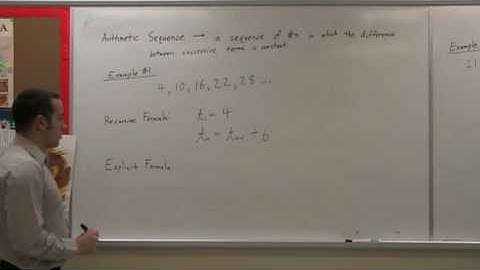 Arithmetic Sequence → a sequence of #s in which the difference
between successive terms is constant.
Example #1
4, 10, 16, 22, 28 ...
Recursive Formula: t₁ = 4
tₙ = tₙ₋₁ + 6
Explicit Formula:
Example
21
A